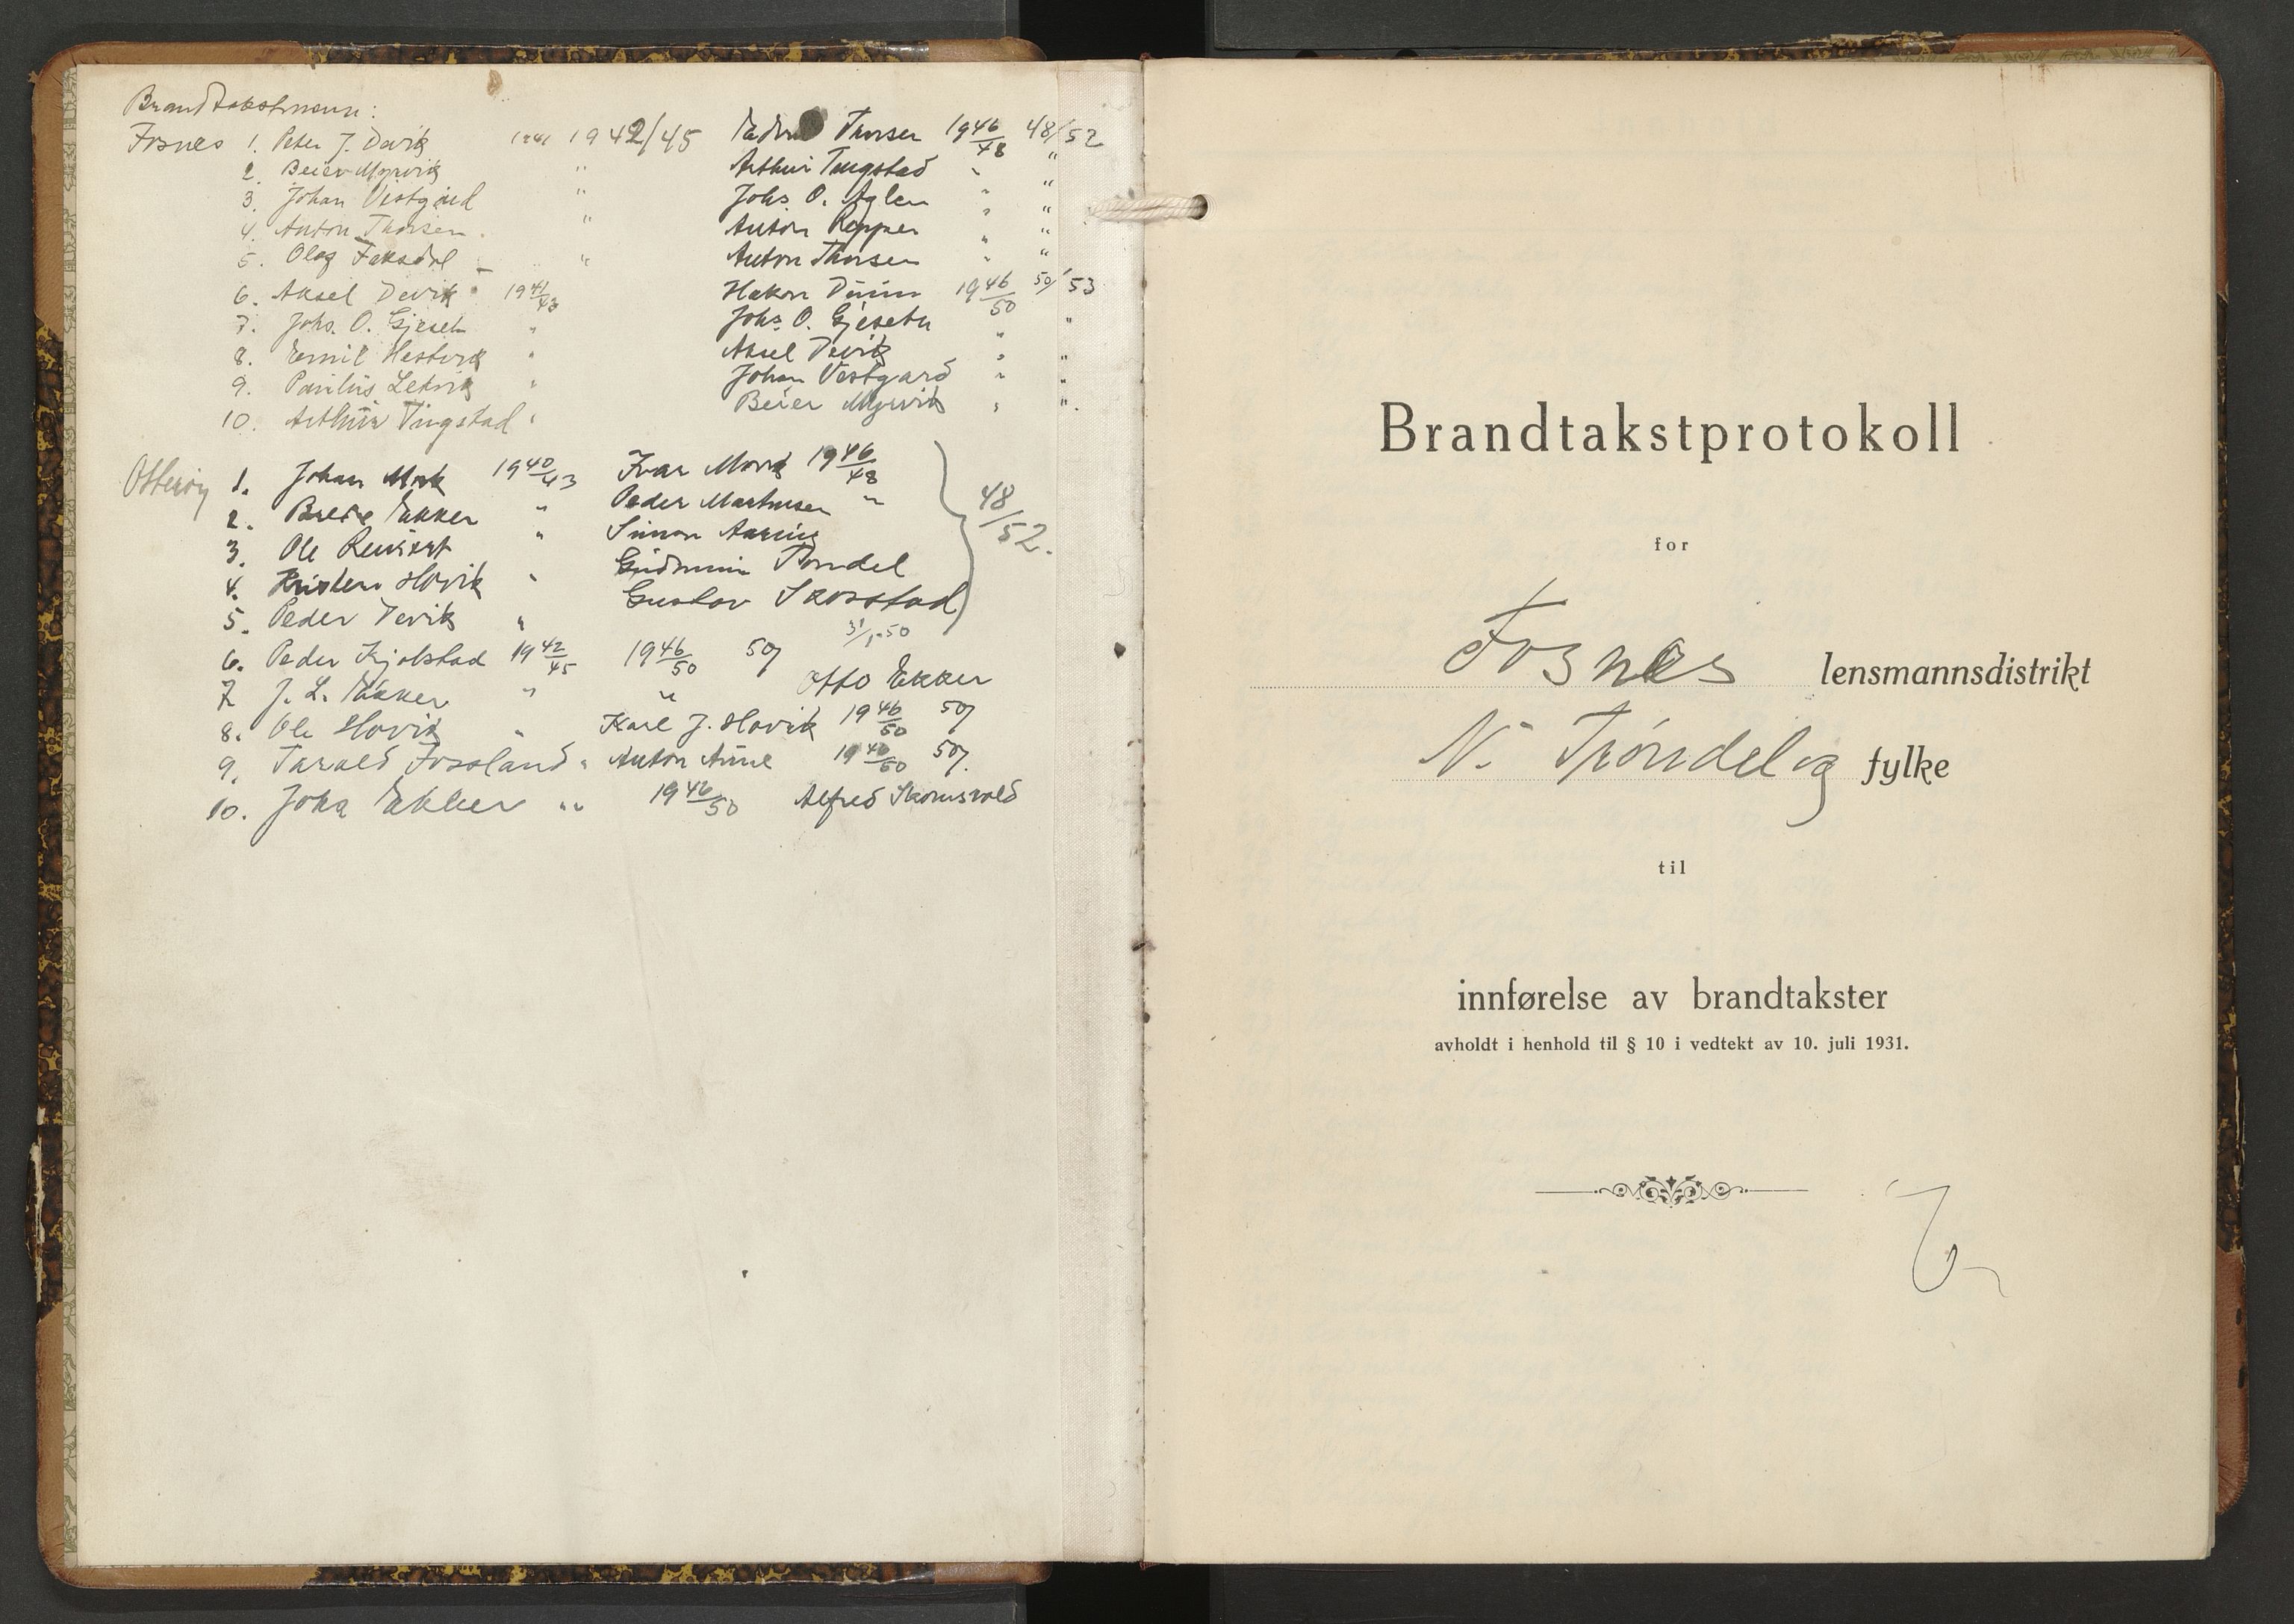 Brandtakstmenn:
Fosnes 1. Peter J. Devik 1941 1942/45 Thorsen 1946/48 48/52
2. Beier Myrvik " Arthur Tingstad " "
3. Johan Vestgård " Johs. O. Aglen " "
4. Anton Thorsen " Anton Repper " "
5. Olaf Faksdal " Anton Thorsen " "
6. Aksel Devik 1941/43 Hakon Duun 1946/50 50/53
7. Johs. O. Gjeseth " Johs. O. Gjeseth " "
8. Emil Hestvik " Aksel Devik " "
9. Paulus Lekvik " Johan Vestgard " "
10. Arthur Tingstad " Beier Myrvik " "
Otterøy 1. Johan Mork 1940/43 Ivar Mork 1946/48
2. Brede Ekker " Peder Marthinsen "
48/52.
3. Ole " Simon
4. Kristen Hovik " Gudmun
5. Peder Devik " Gustav Skorstad
31/1-50
6. Peder Kjølstad 1942/45 1946/50 50/
7. J. L. Ekker " " Otto Ekker
8. Ole Hovik " Karl J. Hovik 1946/50 50/
9. Tarald Fossland " Anton Aune 1946/50 50/.
10. Joha Ekker " 1946/50 Alfred
Brandtakstprotokoll
for
Fosnes lensmannsdistrikt
N. Trøndelag fylke
til
innførelse av brandtakster
avholdt i henhold til § 10 i vedtekt av 10. juli 1931.